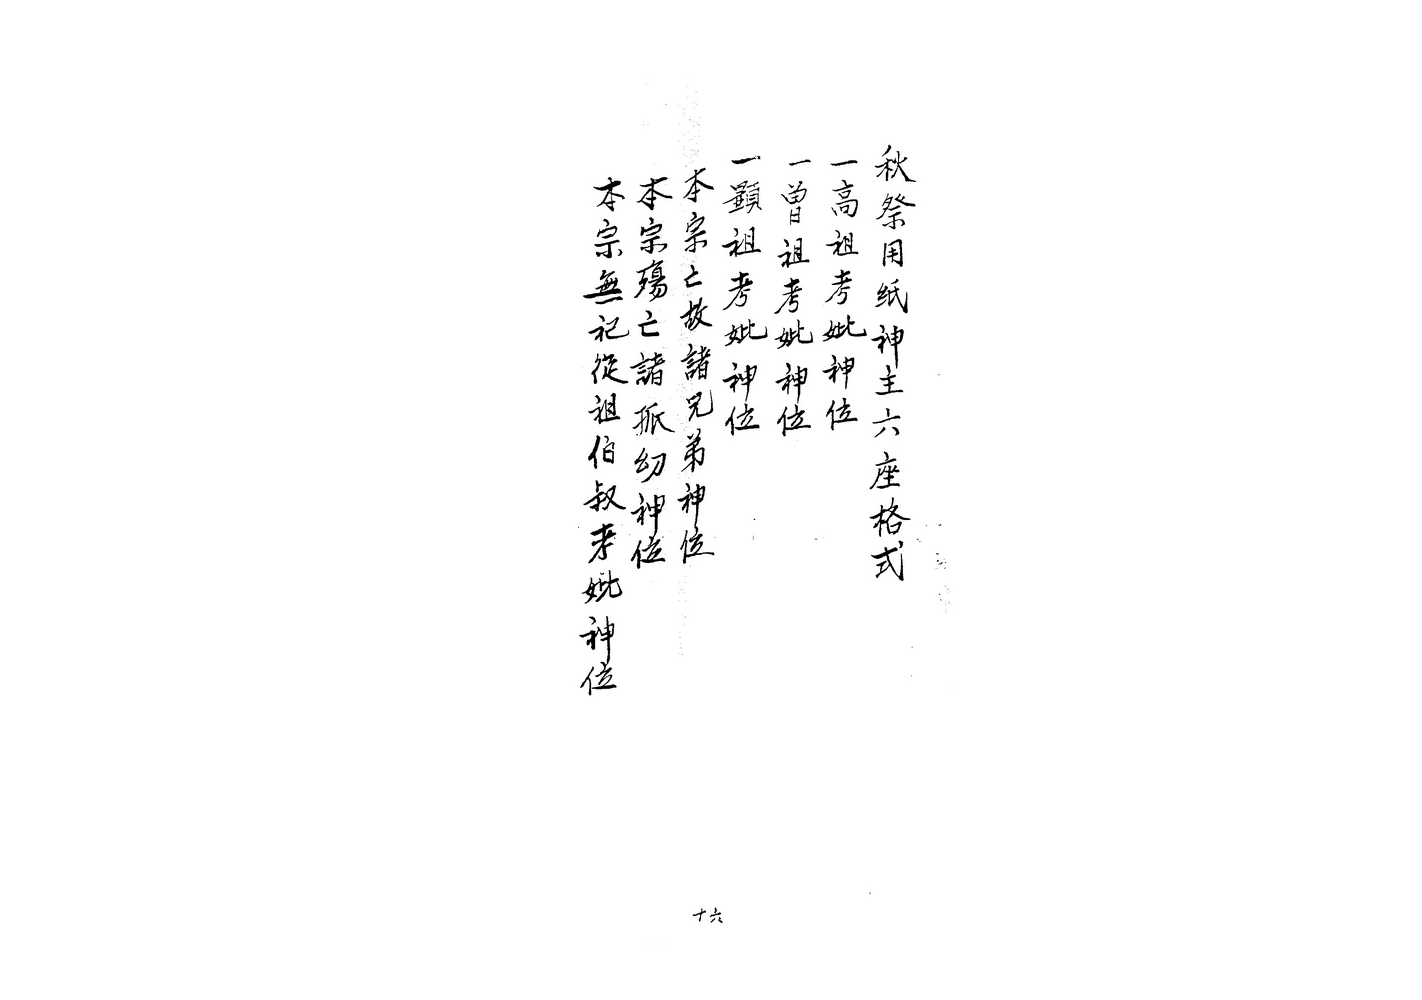 秋祭用纸神主六座格式
一高祖考妣神位
一曾祖考妣神位
一顯祖考妣神位
本宗亡故諸兄弟神位
本宗殤亡諸孤幼神位
本宗無祀從祖伯叔考妣神位
十六